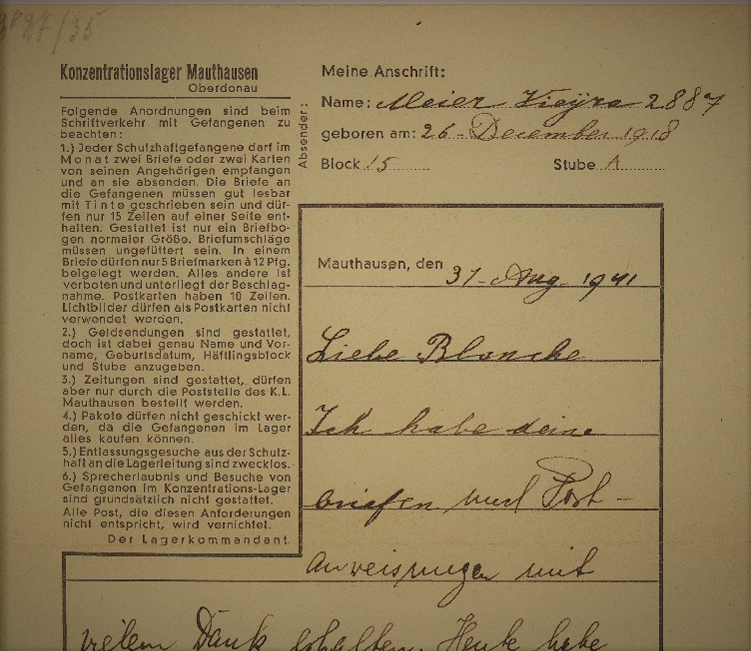 Konzentrationslager Mauthausen
Oberdonau
Folgende Anordnungen sind beim
Schriftverkehr mit Gefangenen zu
beachten:
1.) Jeder Schutzhaftgefangene darf im
Monat zwei Briefe oder zwei Karten
von seinen Angehörigen empfangen
und an sie absenden. Die Briefe an
die Gefangenen müssen gut lesbar
mit Tinte geschrieben sein und dür-
fen nur 15 Zeilen auf einer Seite ent-
halten. Gestattet ist nur ein Briefbo-
gen normaler Größe. Briefumschläge
müssen ungefüttert sein. In einem
Briefe dürfen nur 5 Briefmarken à 12 Pfg.
beigelegt werden. Alles andere ist
verboten und unterliegt der Beschlag-
nahme. Postkarten haben 10 Zeilen.
Lichtbilder dürfen als Postkarten nicht
verwendet werden.
2.) Geldsendungen sind gestattet,
doch ist dabei genau Name und Vor-
name, Geburtsdatum, Häftlingsblock
und Stube anzugeben.
3.) Zeitungen sind gestattet, dürfen
aber nur durch die Poststelle des K.L.
Mauthausen bestellt werden.
4.) Pakete dürfen nicht geschickt wer-
den, da die Gefangenen im Lager
alles kaufen können.
5.) Entlassungsgesuche aus der Schutz-
haft an die Lagerleitung sind zwecklos.
6.) Sprecherlaubnis und Besuche von
Gefangenen im Konzentrations-Lager
sind grundsätzlich nicht gestattet.
Alle Post, die diesen Anforderungen
nicht entspricht, wird vernichtet.
Der Lagerkommandant
Absender:
Meine Anschrift:
Name: Meier Vieyra 2887
geboren am: 26 - December 1918
Block 15 Stube A
Mauthausen, den 31 - Aug. 1941
Liebe Blanche
Ich habe deine
briefen und Post-
anweisungen mit
vielem Dank erhalten. Heute habe